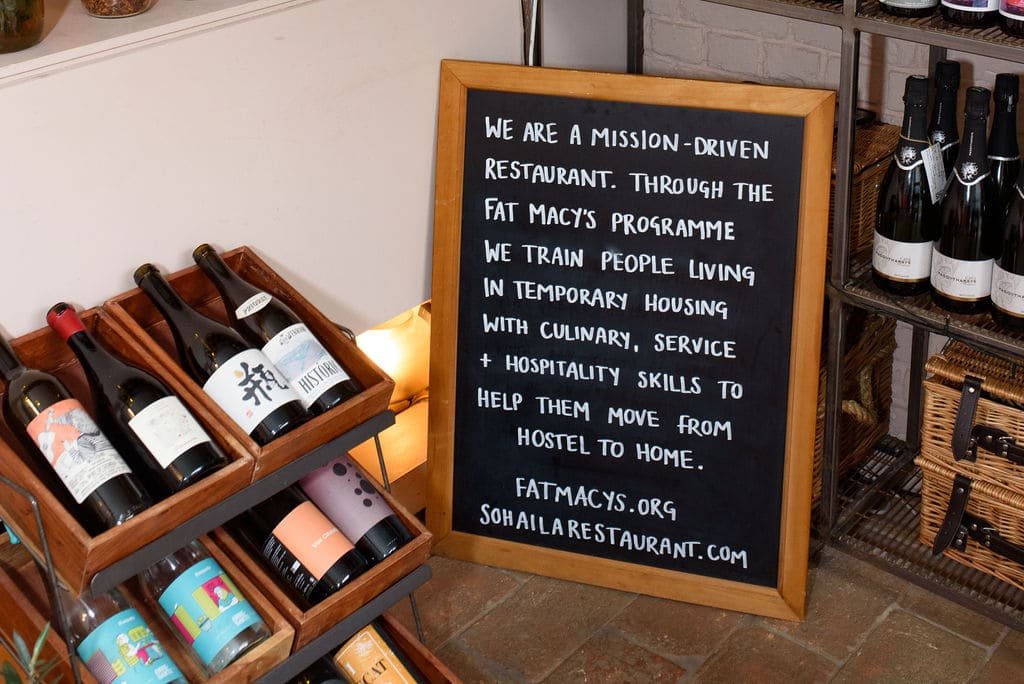 WE ARE A MISSION-DRIVEN
RESTAURANT. THROUGH THE
FAT MACY'S PROGRAMME
WE TRAIN PEOPLE LIVING
IN TEMPORARY HOUSING
WITH CULINARY, SERVICE
+ HOSPITALITY SKILLS TO
HELP THEM MOVE FROM
HOSTEL TO HOME.
FATMACYS.ORG
SOHAILARESTAURANT.COM
瓶